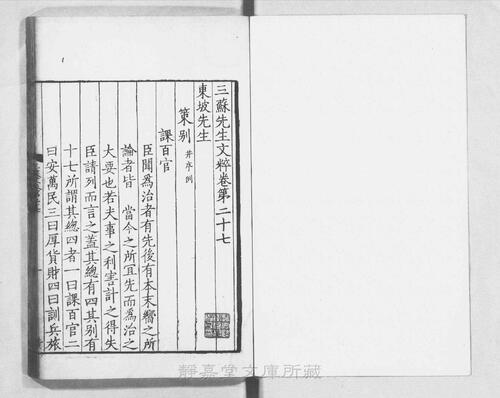 三蘇先生文粹卷第二十七
東坡先生
策别 并序例
課百官
臣聞為治者有先後有本末嚮之所
論者皆 當今之所宜先而為治之
大要也若夫事之利害計之得失
臣請列而言之蓋其總有四其别有
十七所謂其總四者一曰課百官二
曰安萬民三曰厚貨財四曰訓兵旅
靜嘉堂文庫所藏